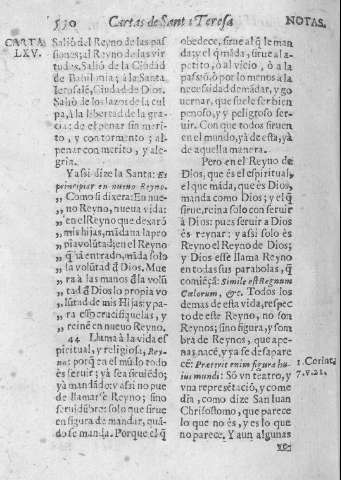 530
Cartas de Santa Teresa
NOTAS.
CARTA
LXV.
Salió del Reyno de las pas
siones; al Reyno de las vir
tudes. Salió de la Ciudad
de Babilonia; à la Santa
Ierusalẽ, Ciudad de Dios.
Salió de los lazos de la cul
pa, à la libertad de la gra-
cia; de el penar sin meri-
to, y con tormento; al
penar con merito, y ale-
gria.
Y assi dize la Santa: Es
principiar en nueuo Reyno.
„ Como si dixera: En nue
„ no Reyno, nueua vida:
„ en el Reyno que dexarõ
„ mis hijas, mãdaua la pro
„ pia volũtad; en el Reyno
„ q̃ hã entrado, mãda solo
„ la volũtad d̃ Dios. Mue
„ ra à las manos d̃ la volũ
„ tad d̃ Dios lo propia vo
„ lũtad de mis Hijas: y pa-
„ ra esso crucifiquelas, y
„ reinè en nuebo Reyno.
44 Llama à la vida es
piritual, y religiosa, Rey-
no: porq̃ en el mũdo todo
ès seruir; yà sea siruiẽdo;
yà mandãdo: y assi no pue
de llamarse Reyno; sino
seruidũbre: solo que sirue
en figura de mandar, quã-
do se manda. Porque el q̃
obedece, sirue al q̃ le man
da; y el q̃ mãda, sirue al a-
petito, ò al vicio, ò à la
passiõ, ò por lo menos à la
necessidad de mãdar, y go
uernar, que suele ser bien
penoso, y y peligroso ser-
uir. Con que todos siruen
en el mundo, yà de esta, yà
de aquella manera.
Pero en el Reyno de
Dios, que ès el espiritual,
el que mãda, que ès Dios,
manda como Dios; y el q̃
sirue, reina solo con seruir
à Dios: pues seruir a Dios
ès reynar: y assi solo ès
Reyno el Reyno de Dios;
y Dios esse llama Reyno
en todas sus parabolas, q̃
comiẽçã: Simile est Regnum
Cœlorum, &c. Todos los
demas de esta vida, respec
to de este Reyno, no son
Reynos; sino figura, y som
bra de Reynos, que ape-
nas nace, y ya se desapare
cẽ: Præterit enim figura hu
ius mundi: Sõ vn teatro, y
vna represẽtaciõ, y come
dia, como dize San Iuan
Chrisostomo, que parece
lo que no ès, y es lo que
no parece. Y aun algunas
1. Corint.
7. v. 21.
ve-